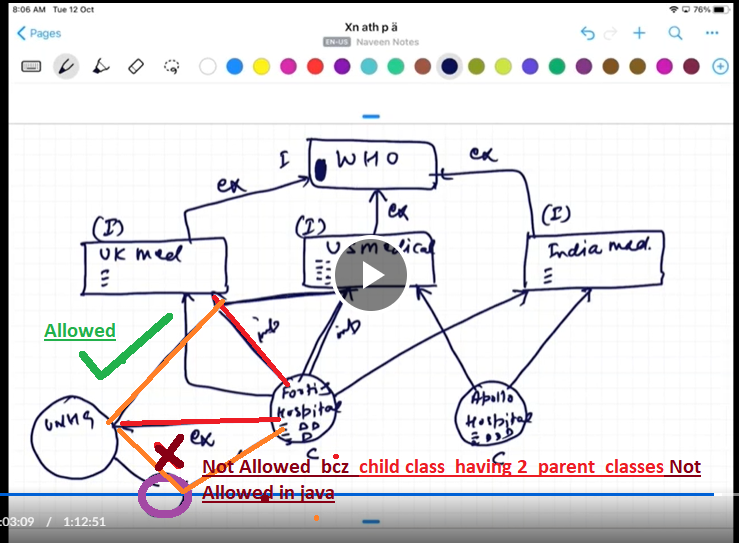 8:06 AM Tue 12 Oct
76%
Xn ath p ä
Pages
EN-US Naveen Notes
I WHO
ex
ex
ex
(I)
(I)
(I)
UK med
US medical
India med.
Allowed
Fortis
Hospital
C
Apollo
Hospital
C
ex
Not Allowed bcz child class having 2 parent classes Not
Allowed in java
:03:09 / 1:12:51